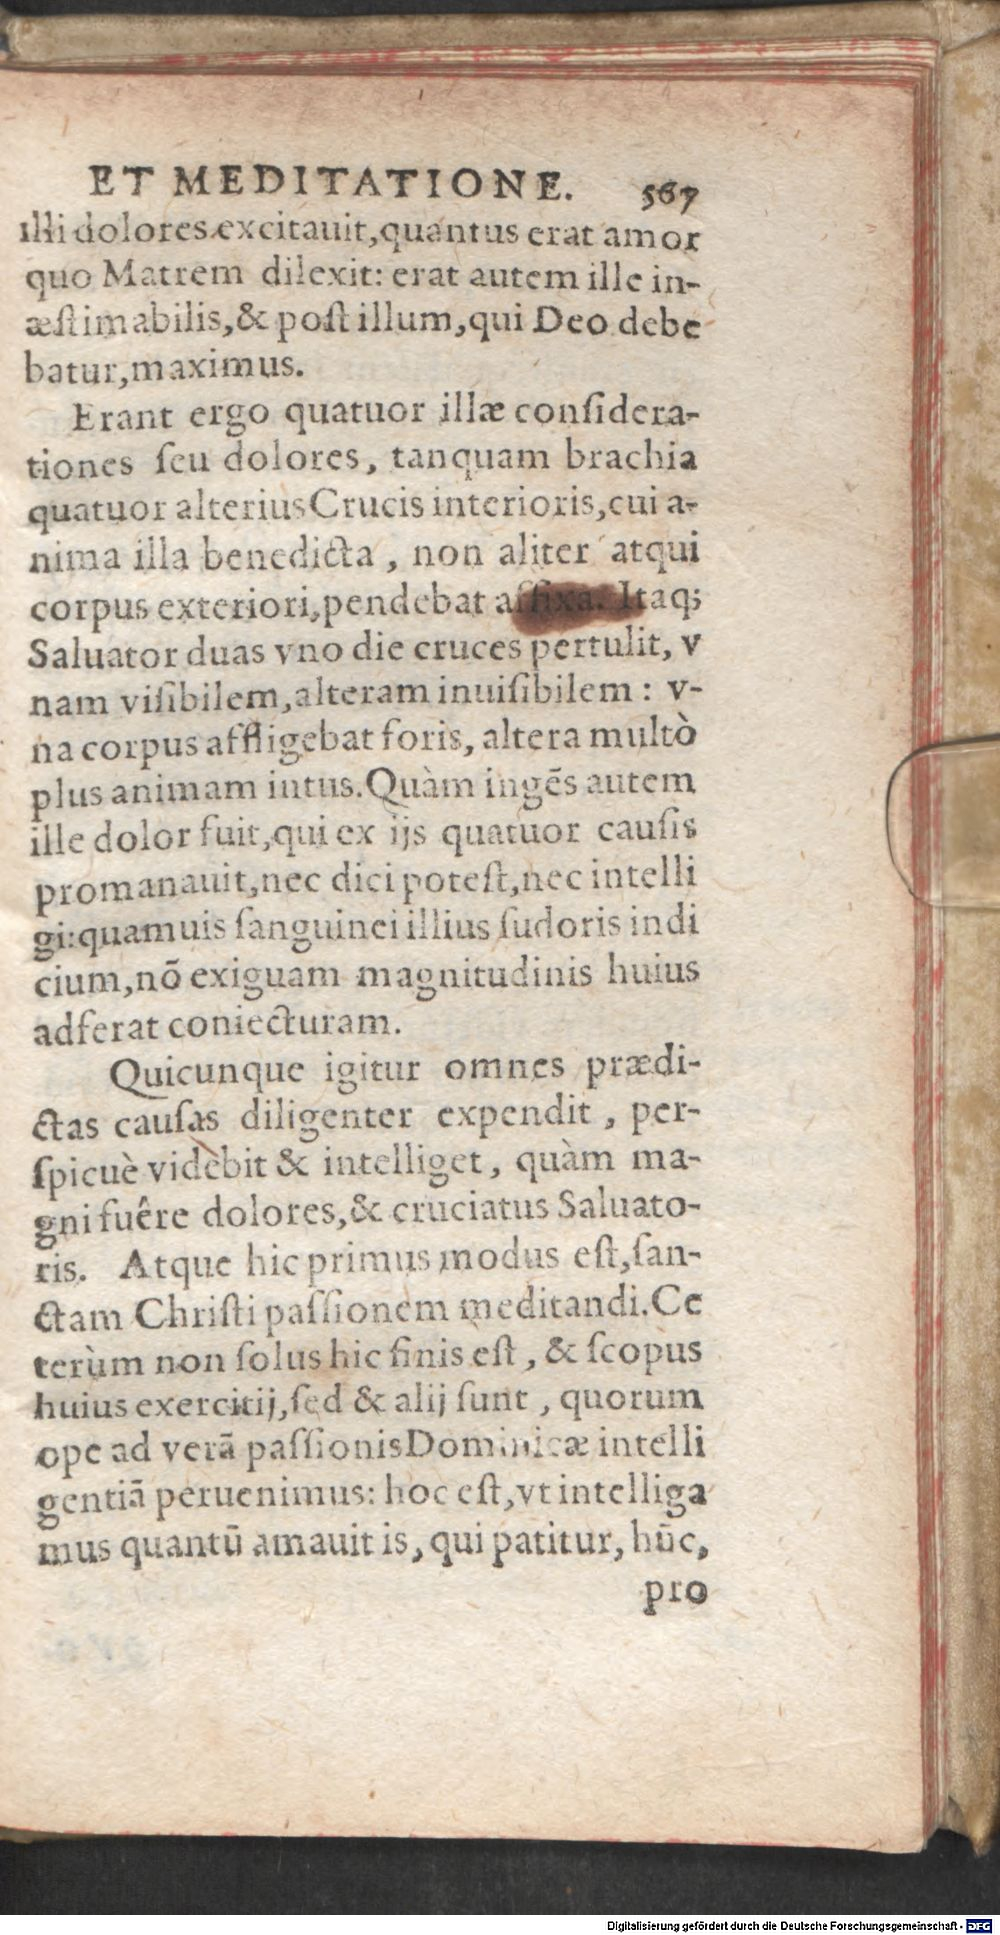 ET MEDITATIONE. 567
illi dolores excitauit, quantus erat amor
quo Matrem dilexit: erat autem ille in-
æſtimabilis, & poſt illum, qui Deo debe
batur, maximus.
Erant ergo quatuor illæ conſidera-
tiones ſeu dolores, tanquam brachia
quatuor alterius Crucis interioris, cui a-
nima illa benedicta, non aliter atqui
corpus exteriori, pendebat affixa. Itaq;
Saluator duas vno die cruces pertulit, v
nam viſibilem, alteram inuiſibilem: v-
na corpus affligebat foris, altera multò
plus animam intus. Quàm ingẽs autem
ille dolor fuit, qui ex ijs quatuor cauſis
promanauit, nec dici poteſt, nec intelli
gi: quamuis ſanguinei illius ſudoris indi
cium, nõ exiguam magnitudinis huius
adferat coniecturam.
Quicunque igitur omnes prædi-
ctas cauſas diligenter expendit, per-
ſpicuè videbit & intelliget, quàm ma-
gni fuêre dolores, & cruciatus Saluato-
ris. Atque hic primus modus eſt, ſan-
ctam Chriſti paſſionem meditandi. Ce
terùm non ſolus hic finis eſt, & ſcopus
huius exercitij, ſed & alij ſunt, quorum
ope ad verã paſſionis Dominicæ intelli
gentiã peruenimus: hoc eſt, vt intelliga
mus quantũ amauit is, qui patitur, hũc,
pro
Digitalisierung gefördert durch die Deutsche Forschungsgemeinschaft - DFG